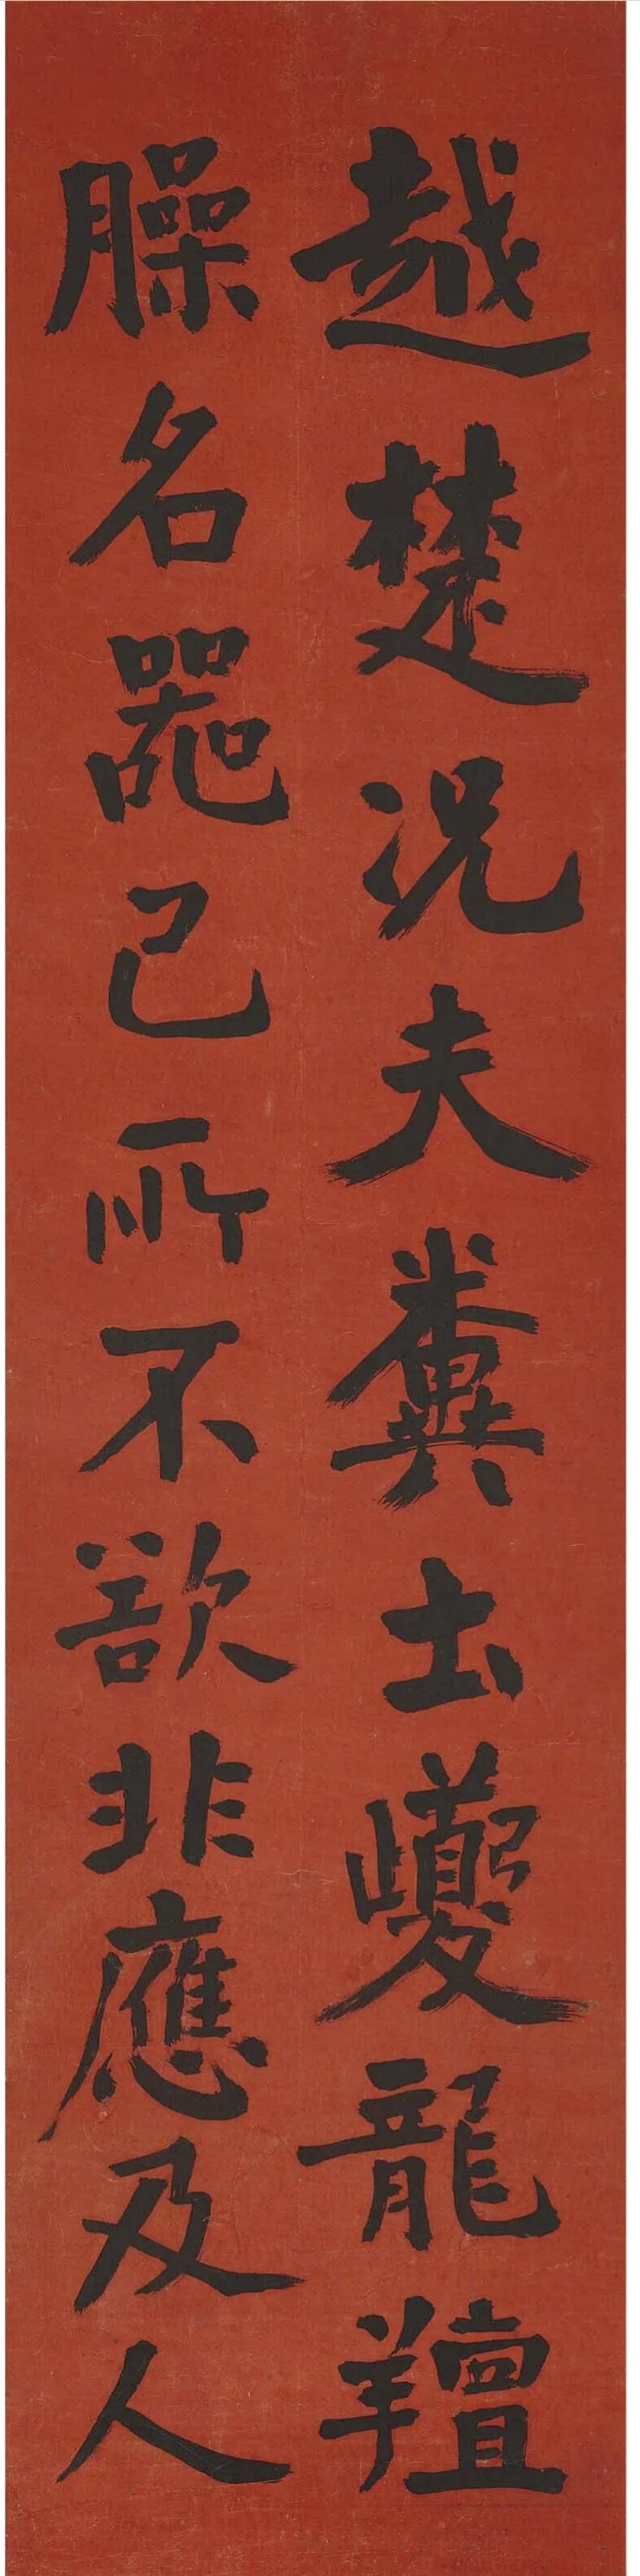 越楚况夫糞土夔龍羶
臊名器己所不欲非應及人